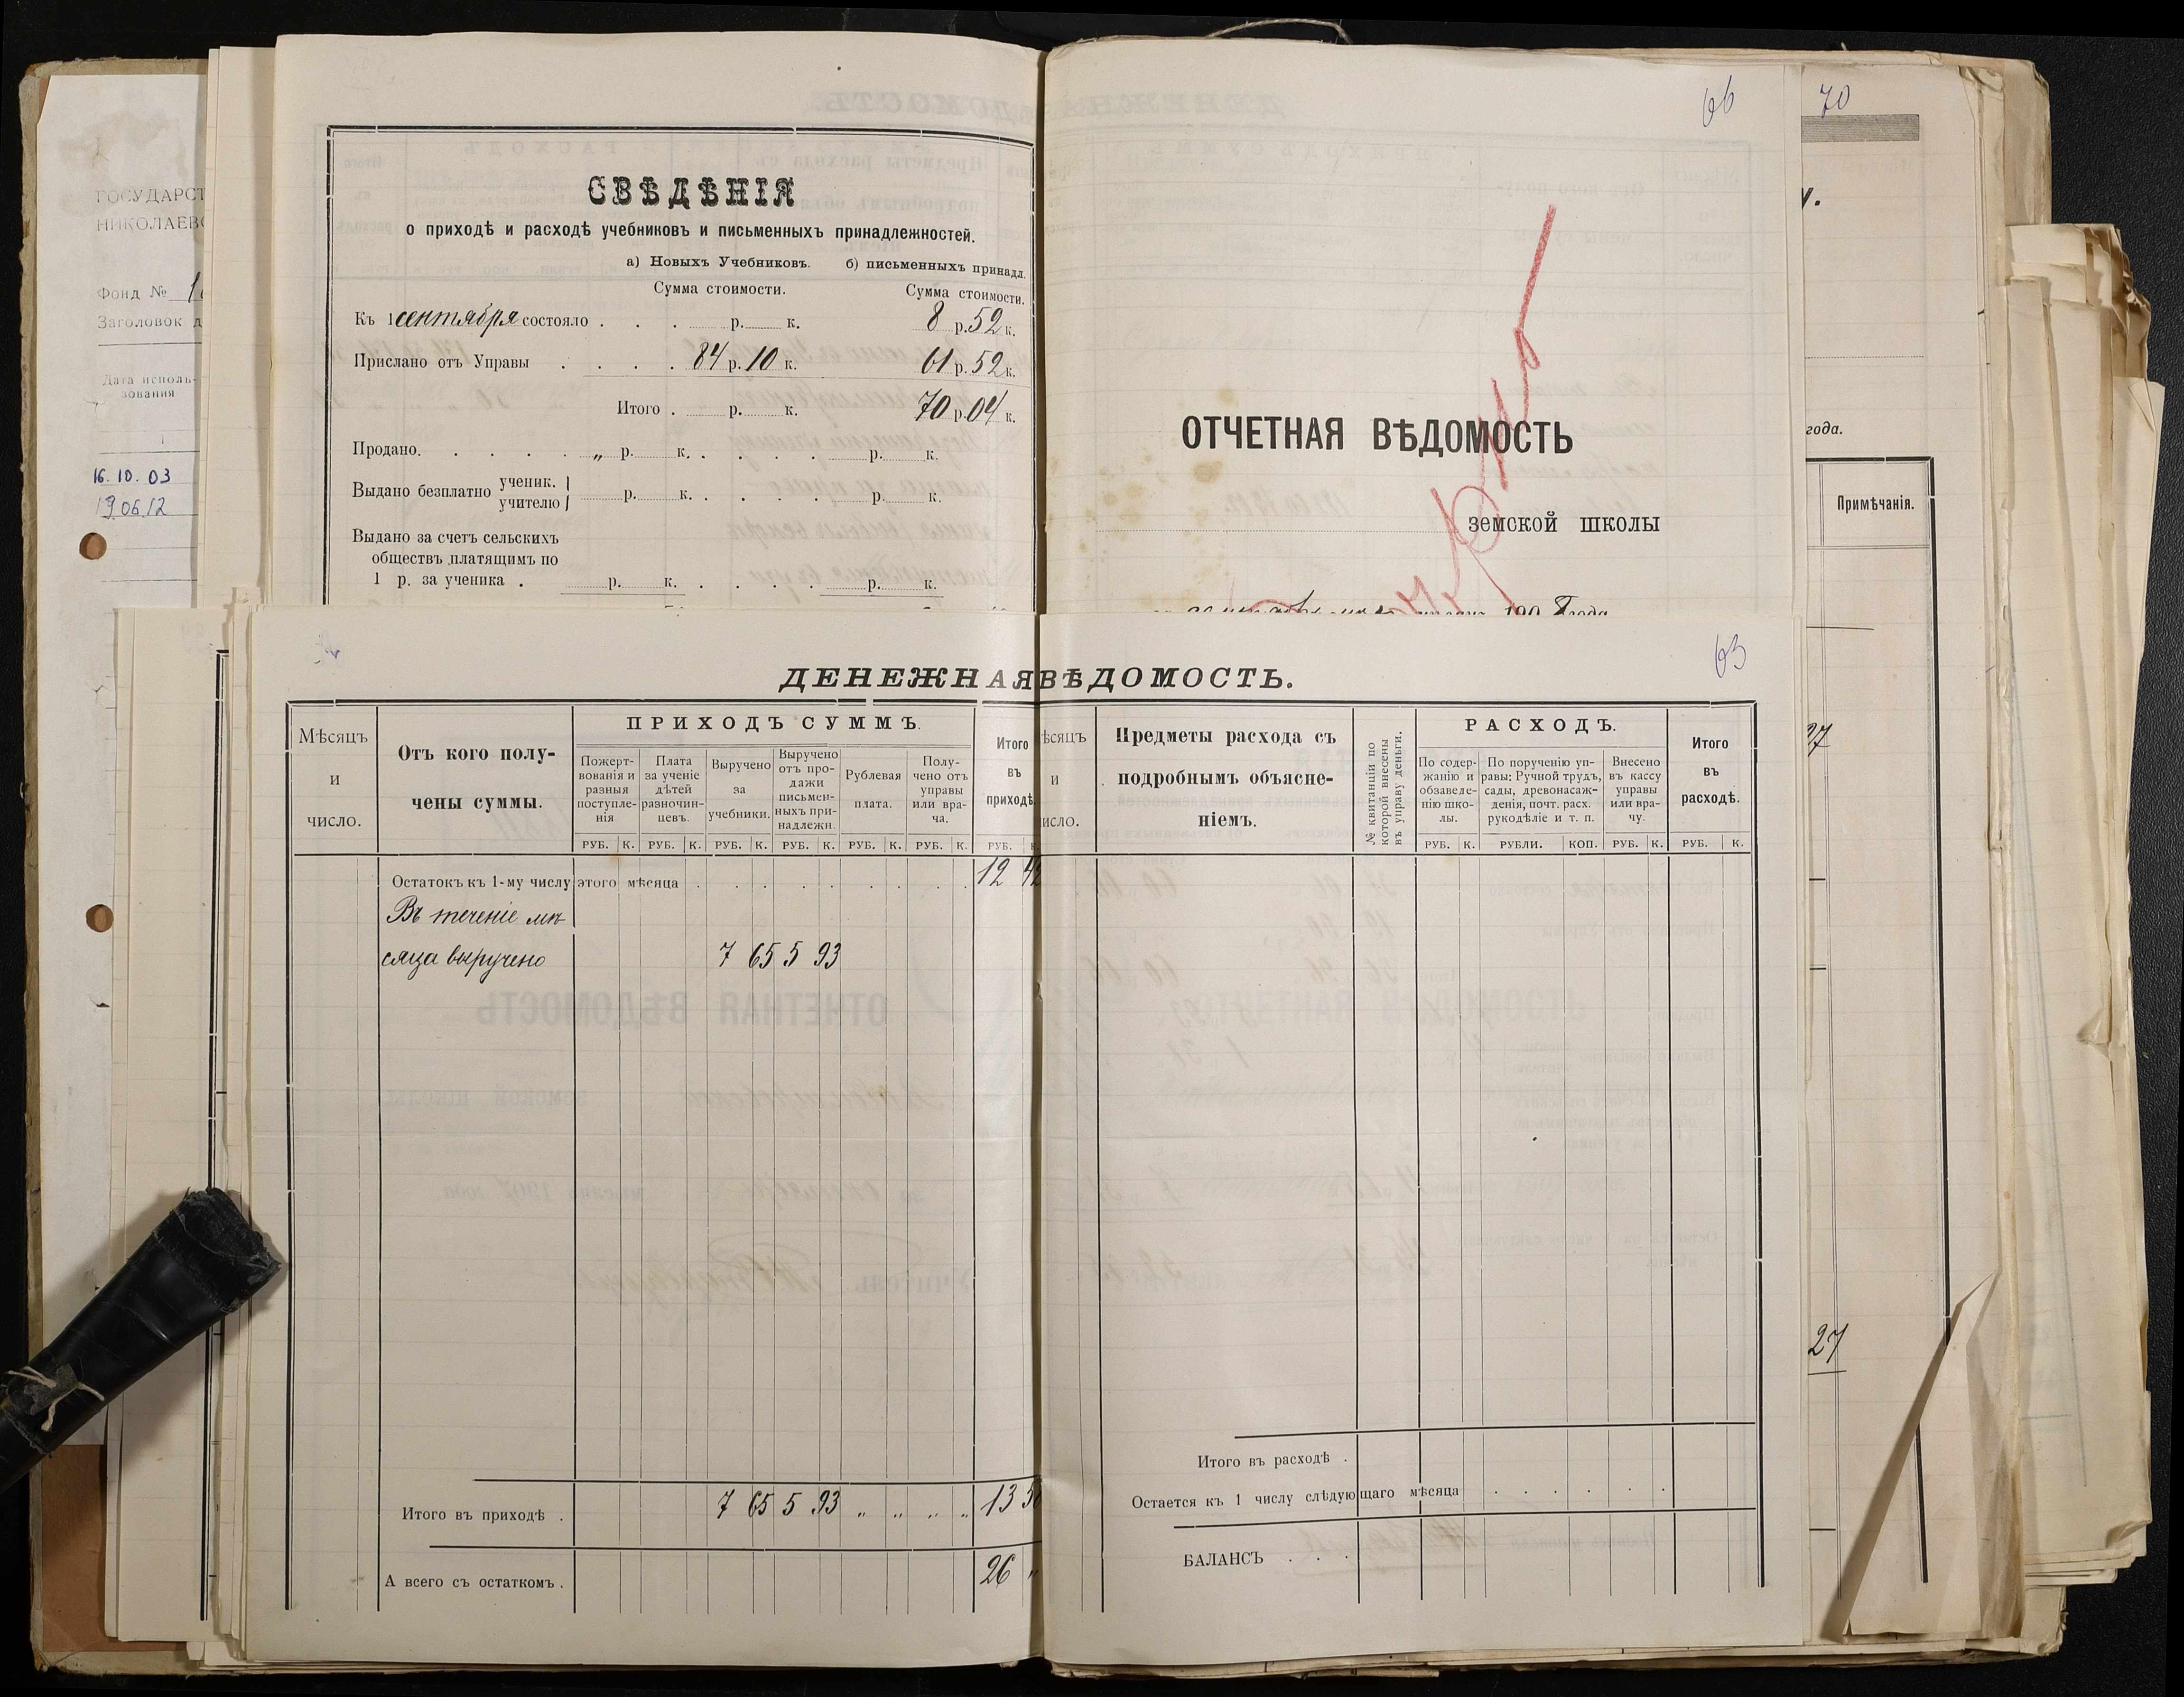 ГОСУДАРСТ
НИКОЛАЕВС
Фонд №
Заголовок д
Дата исполь-
зования
1
16.10.03
19.06.12
СВѢДѢНІЯ
о приходѣ и расходѣ учебниковъ и письменныхъ принадлежностей.
а) Новыхъ Учебниковъ. б) письменныхъ принадл.
Сумма стоимости. Сумма стоимости.
Къ 1 сентября состояло . . . р. к. 8 р. 52 к.
Прислано отъ Управы . . . . 84 р. 10 к. 61 р. 52 к.
Итого . р. к. 70 р. 04 к.
Продано. . . . . „ р. к. . . . . р. к.
Выдано безплатно ученик. учителю р. к. . . . . р. к.
Выдано за счет сельскихъ
обществъ платящимъ по
1 р. за ученика . р. к. . . . . р. к.
66
ОТЧЕТНАЯ ВѢДОМОСТЬ
земской школы
190 8 года
70
у.
года.
Примѣчанія.
27
27
63
ДЕНЕЖНАЯ ВѢДОМОСТЬ.
Мѣсяцъ
и
число.
Отъ кого полу-
чены суммы.
ПРИХОДЪ СУММЪ.
Пожерт-
вованія и
разныя
поступле-
нія
Плата
за ученіе
дѣтей
разночин-
цевъ.
Выручено
за
учебники.
Выручено
отъ про-
дажи
письмен-
ныхъ при-
надлежн.
Рублевая
плата.
Полу-
чено отъ
управы
или вра-
ча.
Итого
въ
приходѣ.
РУБ. К. РУБ. К. РУБ. К. РУБ. К. РУБ. К. РУБ. К. РУБ. К.
Остатокъ къ 1-му числу этого мѣсяца . . . . . . . . 12 42
Въ теченіе мѣ-
сяца выручено 7 65 5 93
Итого въ приходѣ . 7 65 5 93 „ „ „ „ 13 58
А всего съ остаткомъ . 26 „
ѣсяцъ
и
исло.
Предметы расхода съ
подробнымъ объясне-
ніемъ.
№ квитанціи по
которой внесены
въ управу деньги.
РАСХОДЪ.
По содер-
жанію и
обзаведе-
нію шко-
лы.
По порученію уп-
равы: Ручной трудъ,
сады, древонасаж-
денія, почт. расх.
рукодѣліе и т. п.
Внесено
въ кассу
управы
или вра-
чу.
Итого
въ
расходѣ.
РУБ. К. РУБЛИ. КОП. РУБ. К. РУБ. К.
Итого въ расходѣ .
Остается къ 1 числу слѣдующаго мѣсяца . . . . . .
БАЛАНСЪ . . .